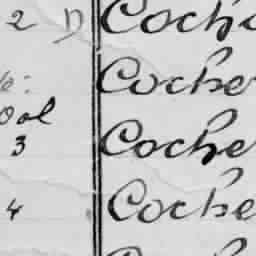 2 D Coche
Cocher
ool
3 Coche
4 Coche